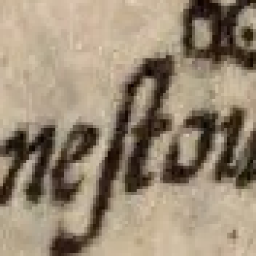 neſtou